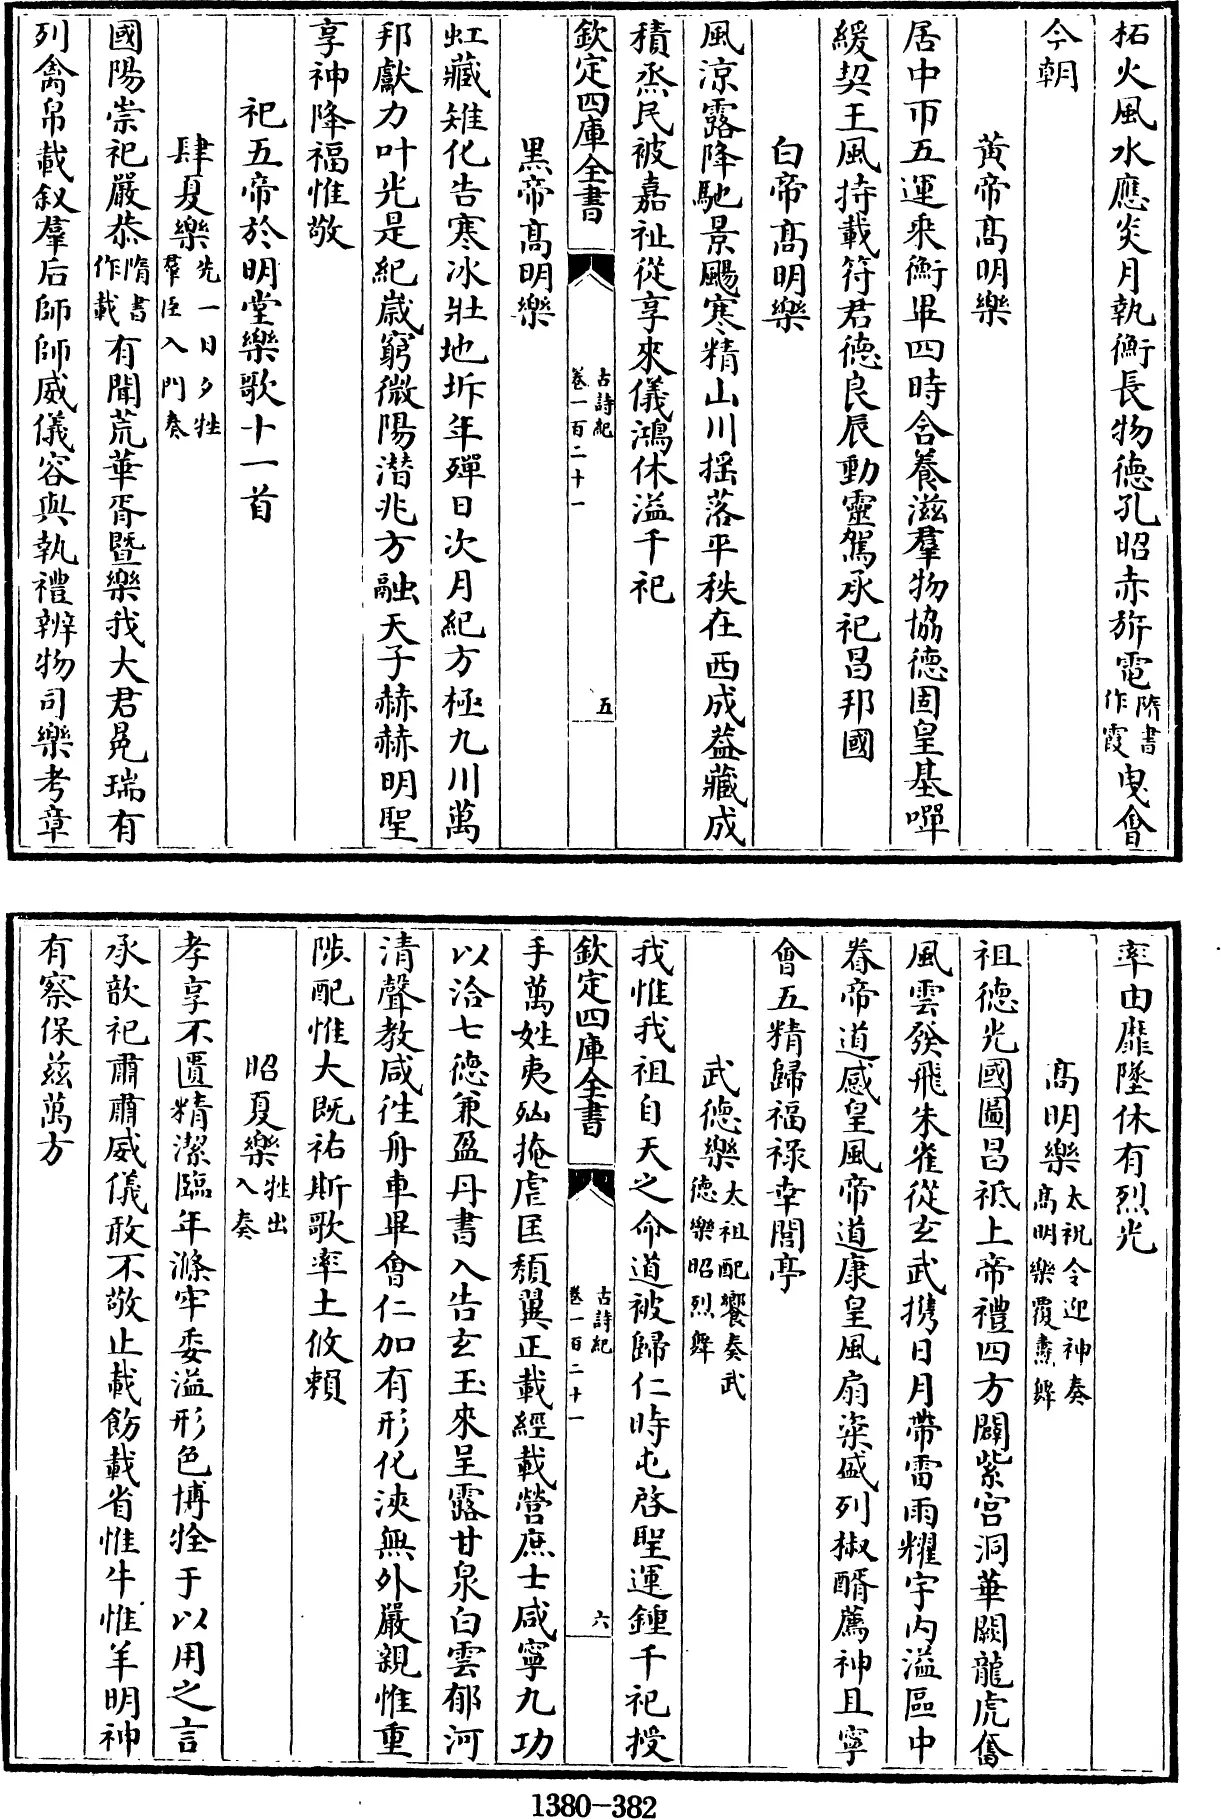 柘火風水應炎月執衡長物德孔昭赤旂電隋書作霞曳會
今朝
黄帝髙明樂
居中帀五運乘衡畢四時含養滋羣物協德固皇基嘽
緩契王風持載符君德良辰動靈駕承祀昌邦國
白帝髙明樂
風涼露降馳景颺寒精山川揺落平秩在西成蓋藏成
積烝民被嘉祉從享來儀鴻休溢千祀
欽定四庫全書
古詩紀
卷一百二十一
五
黑帝髙明樂
虹藏雉化告寒冰壯地坼年殫日次月紀方極九川萬
邦獻力叶光是紀歲窮微陽潛兆方融天子赫赫明聖
享神降福惟敬
祀五帝於明堂樂歌十一首
肆夏樂先一日夕牲羣臣入門奏
國陽崇祀嚴恭隋書作載有聞荒華胥暨樂我大君冕瑞有
列禽帛載叙羣后師師威儀容與執禮辨物司樂考章
率由靡墜休有烈光
髙明樂太祝令迎神奏髙明樂覆燾舞
祖德光國圖昌祗上帝禮四方闢紫宫洞華闕龍虎奮
風雲發飛朱雀從玄武攜日月帶雷雨耀宇内溢區中
眷帝道感皇風帝道康皇風扇粢盛列椒醑薦神且寧
會五精歸福禄幸閶亭
武德樂太祖配饗奏武德樂昭烈舞
我惟我祖自天之命道被歸仁時屯啓聖運鍾千祀授
欽定四庫全書
古詩紀
卷一百二十一
六
手萬姓夷凶掩虐匡頽翼正載經載營庶士咸寧九功
以洽七德兼盈丹書入告玄玉來呈露甘泉白雲郁河
清聲教咸徃舟車畢會仁加有形化浹無外嚴親惟重
陟配惟大既祐斯歌率土攸賴
昭夏樂牲出入奏
孝享不匱精潔臨年滌牢委溢形色博牷于以用之言
承歆祀肅肅威儀敢不敬止載飭載省惟牛惟羊明神
有察保兹萬方
1380-382